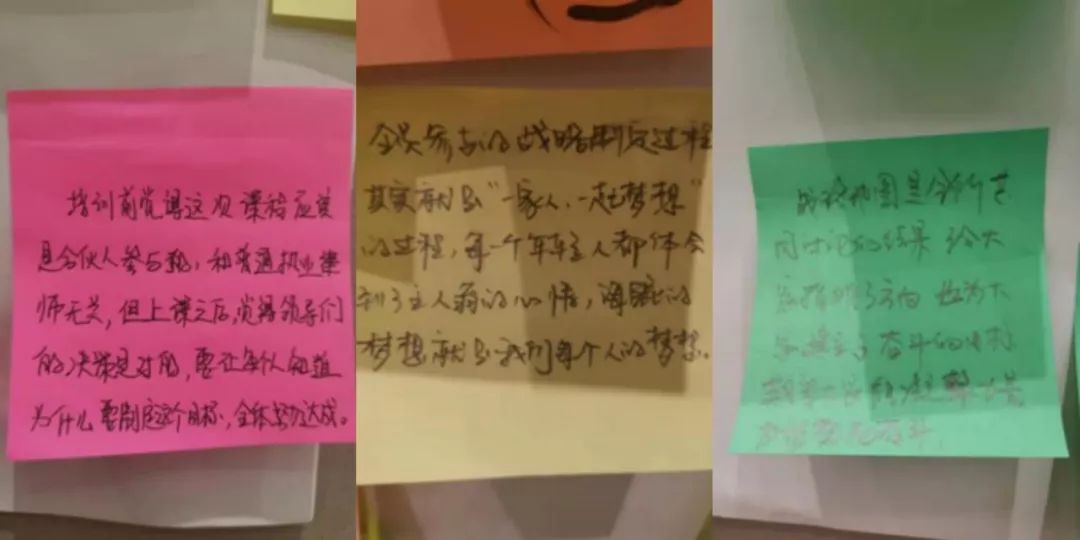 培训前觉得这次课程应该
是合伙人参与的，和普通执业律
师无关，但上课之后，觉得领导们
的决策是对的，要让每个人知道
为什么要制定这个目标，全体努力达成。
全员参与的战略制定过程
其实就是“一家人，一起梦想”
的过程，每一个年轻人都体会
到了主人翁的心情，海融的
梦想就是我们每个人的梦想。
战略地图是全所共
同讨论的结果 给大
家指明了方向 也为大
家建立了奋斗的目标